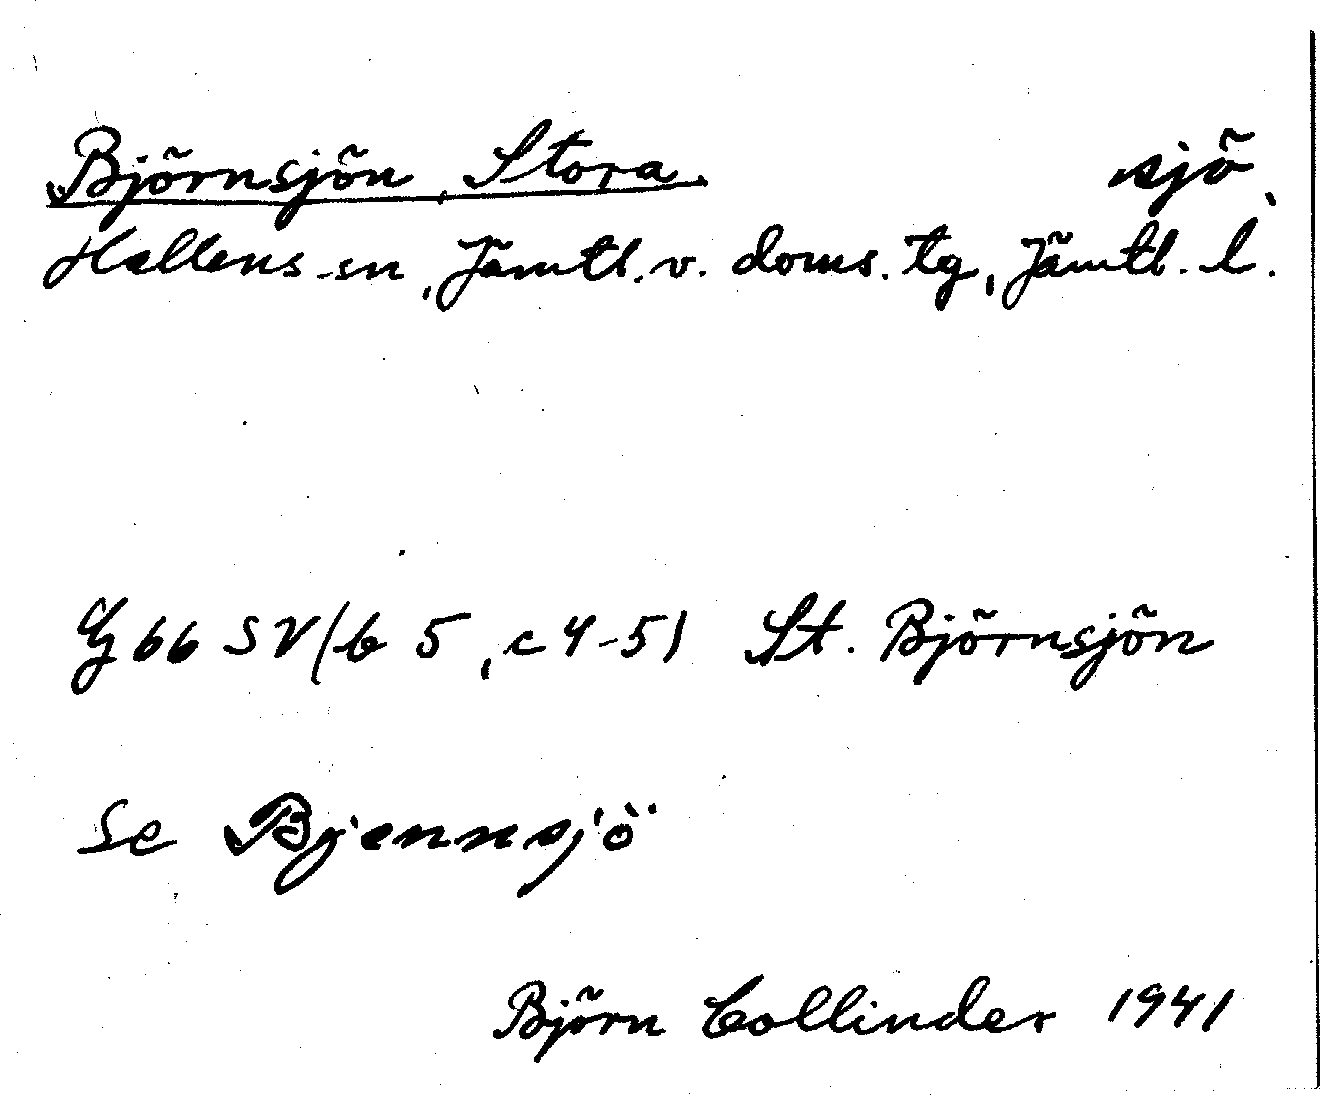 Björnsjön, Stora. sjö
Hallens sn, Jämtl. v. doms. tg, Jämtl. l.
G 66 SV (b 5, c 4-5) St. Björnsjön
Se Bjennsjö
Björn Collinder 1941